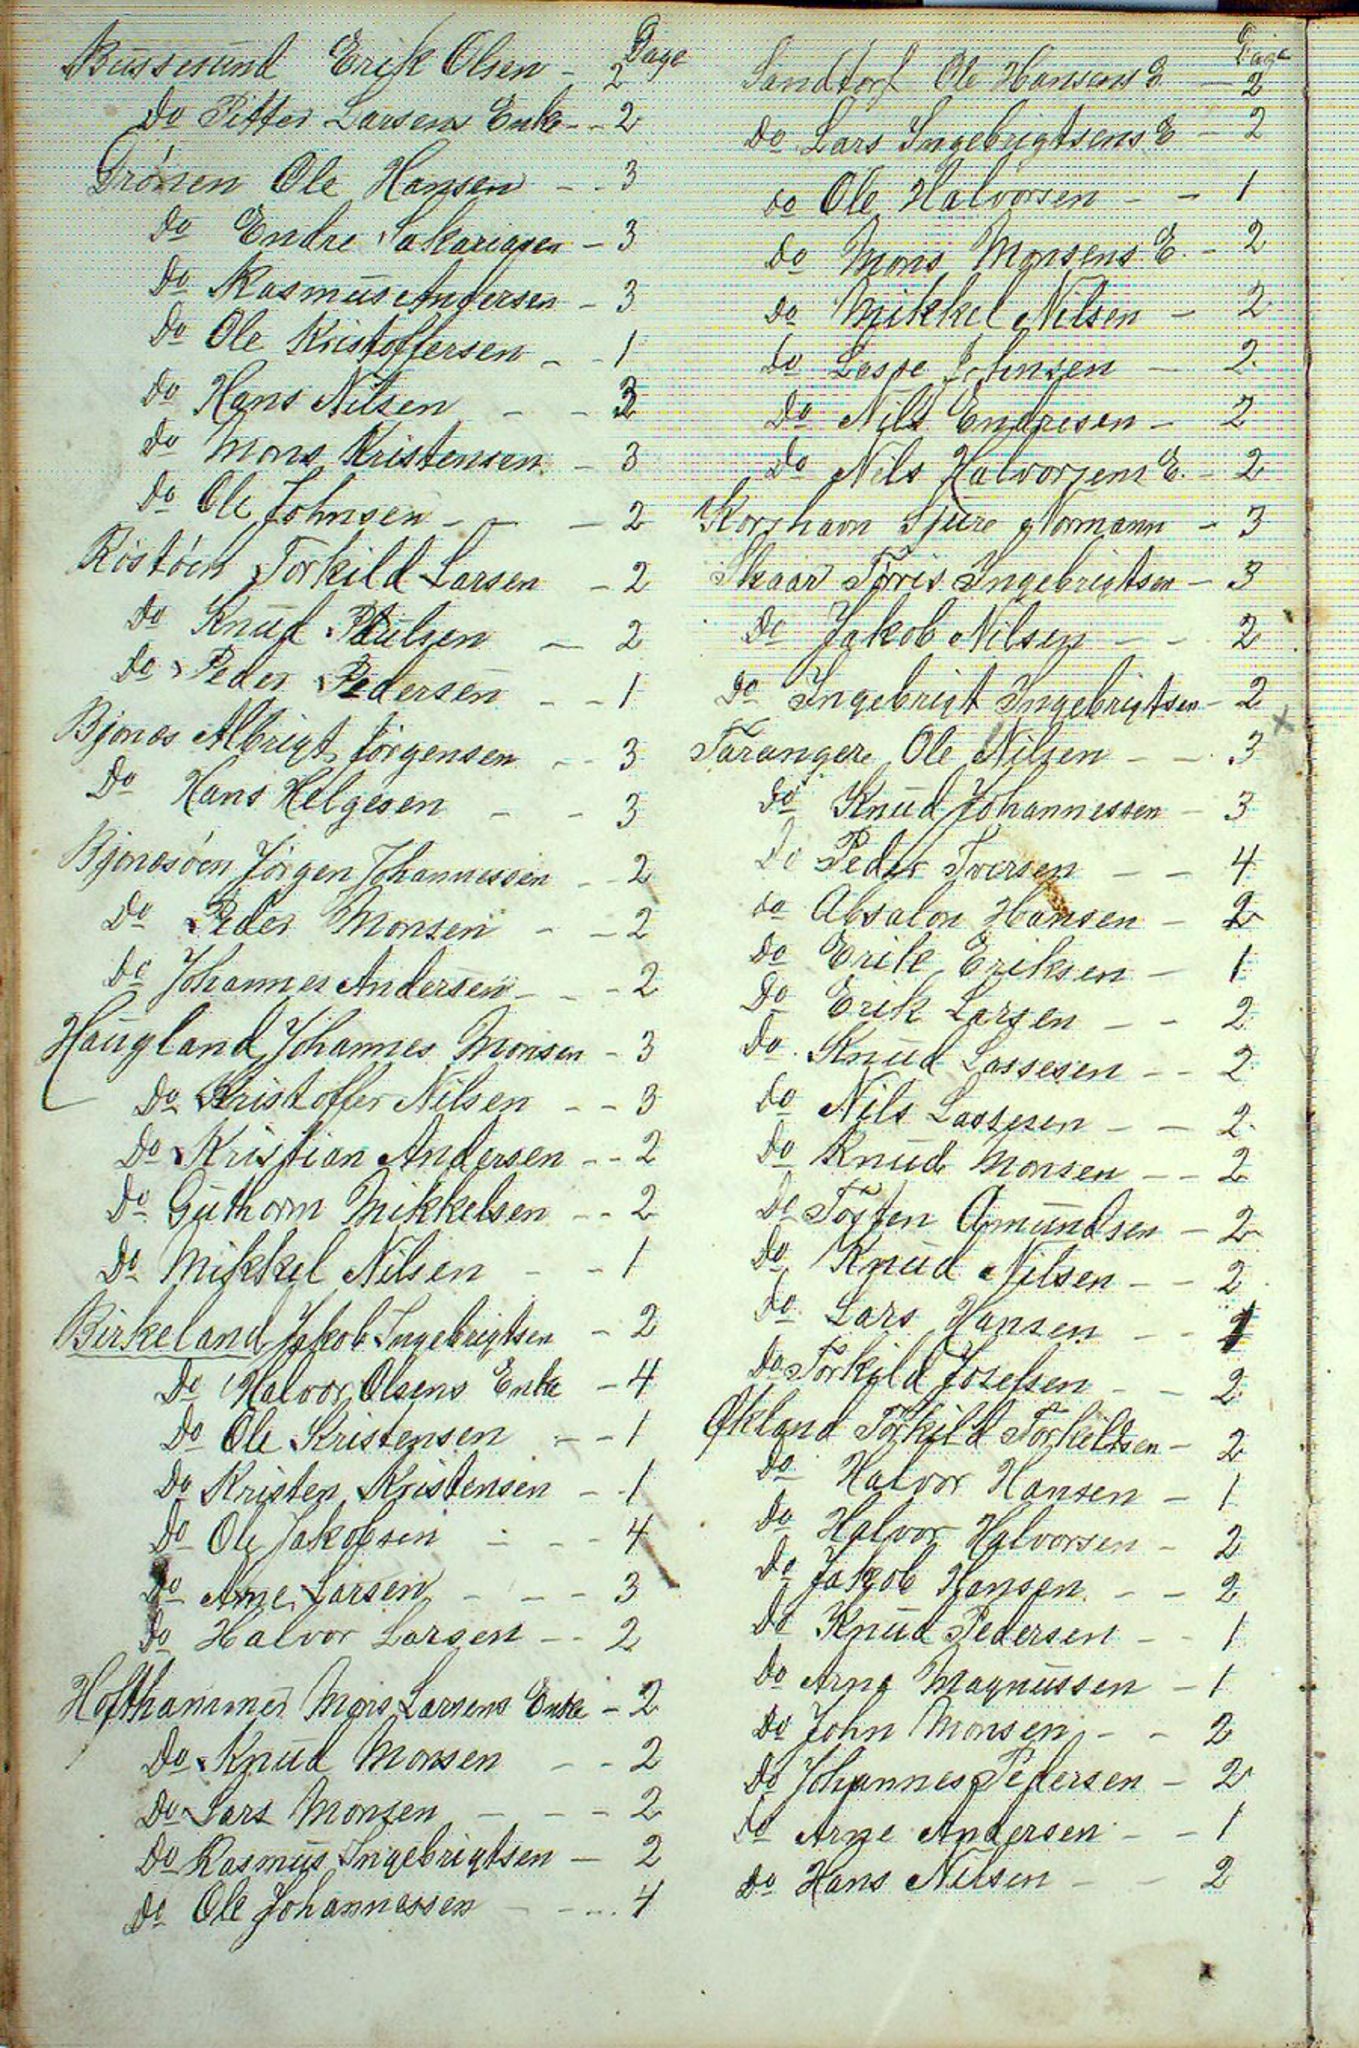 Dage
Bussesund Erik Olsen - 2
Do Pitter Larsens Enke - - 2
Drönen Ole Hansen - - 3
Do Endre Sakariasen - 3
Do Rasmus Andersen - 3
Do Ole Kristoffersen - - 1
Do Hans Nilsen - - 3
Do Mons Kristensen - 3
Do Ole Johnsen - - - 2
Röstöen Torkild Larsen - 2
Do Knud Paulsen - 2
Do Peder Pedersen - - 1
Bjønes Albrigt Jörgensen - - 3
Do Hans Helgesen - - 3
Bjønesöen Jörgen Johannessen - - 2
Do Peder Monsen - - 2
Do Johannes Andersen - - - 2
Haugland Johannes Monsen - 3
Do Kristoffer Nilsen - - 3
Do Kristian Andersen - - 2
Do Guthorm Mikkelsen - - 2
Do Mikkel Nilsen - - 1
Birkeland Jakob Ingebrigtsen - 2
Do Halvor Olsens Enke - 4
Do Ole Kristensen - - 1
Do Kristen Kristensen - - 1
Do Ole Jakobsen - - - 4
Do Arne Larsen - - - 3
Do Halvor Larsen - - 2
Hofthammer Mons Larsens Enke - 2
Do Knud Monsen - - 2
Do Lars Monsen - - - 2
Do Rasmus Ingebrigtsen - 2
Do Ole Johannessen - - - 4
Dage
Sandtorf Ole Hansens E. - 2
Do Lars Ingebrigtsens E - 2
do Ole Halvorsen - - 1
Do Mons Monsens E. - 2
Do Mikkel Nilsen - 2
Do Lasse Johnsen - 2
Do Nils Endresen - 2
Do Nils Halvorsens E. - 2
Korshavn Sjure Normann - 3
Skaar Törris Ingebrigtsen - 3
Do Jakob Nilsen - - 2
Do Ingebrigt Ingebrigtsen - 2
Taranger Ole Nilsen - - 3
Do Knud Johannessen - 3
Do Peder Iversen - - 4
do Absalon Hansen - 2
Do Erik Eriksen - 1
Do Erik Larsen - - 2
Do Knud Lassesen - - 2
do Nils Lassesen - - 2
Do Knud Monsen - - 2
Do Torsten Amundsen - 2
Do Knud Nilsen - - 2
Do Lars Hansen - - 1
Do Torkild Josefsen - - 2
Økland Torkild Torkildsen - 2
Do Halvor Hansen - 1
Do Halvor Halvorsen - 2
Do Jakob Hansen - - 2
Do Knud Pedersen - - 1
Do Arne Magnussen - 1
Do John Monsen - - 2
Do Johannes Pedersen - 2
Do Arne Andersen - - 1
Do Hans Nilsen - - 2